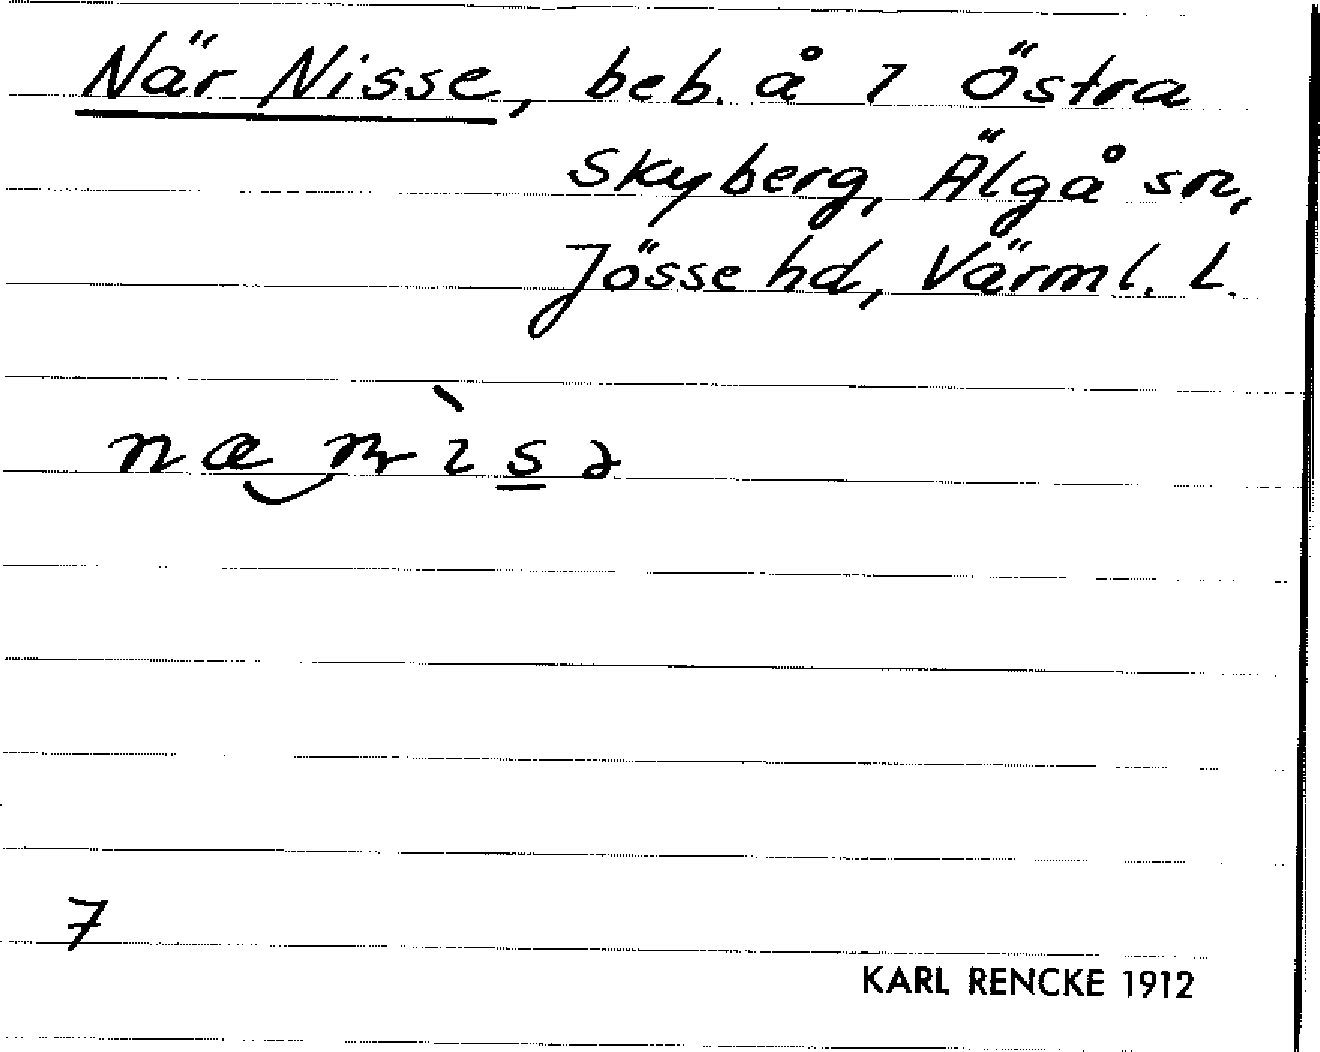 När Nisse, beb. å 1 Östra
Skyberg, Älgå sn,
Jösse hd, Värml. L.
7
KARL RENCKE 1912